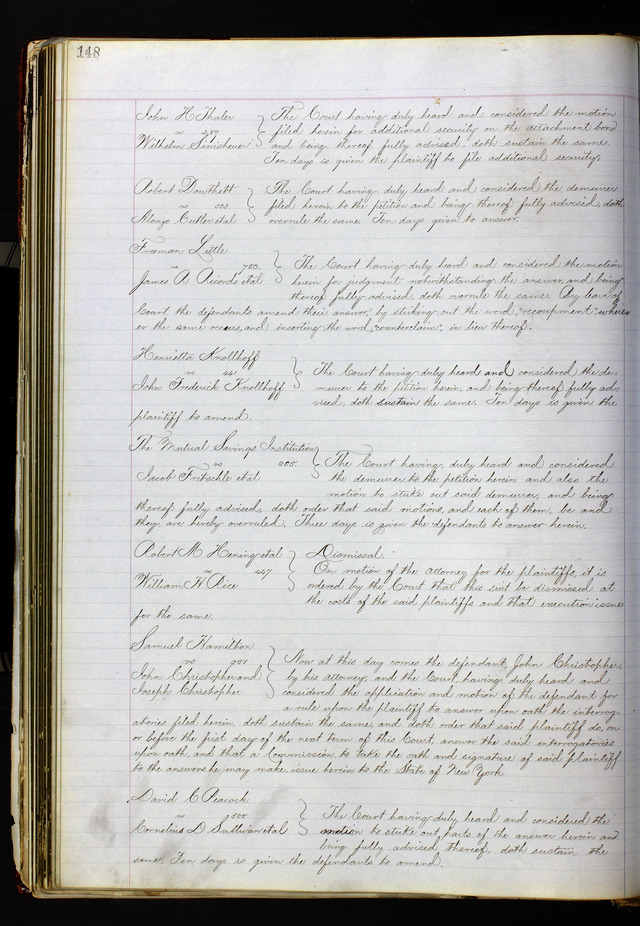 148
John H Thaler } The Court having duly heard and considered the motion
vs 280 filed herein for additional security on the attachment bond
Wilhelm Sinsheuer and being thereof fully advised, doth sustain the same.
Ten days is given the plaintiff to file additional security.
Robert Dowthett } The Court having duly heard and considered the demurrer
vs 503. filed herein to the petition and being thereof fully advised, doth
Alonzo Cutler etal overrule the same. Ten days given to answer.
Freeman Little
vs 750. } The Court having duly heard and considered the motion
James A etal herein for judgment notwithstanding the answer, and being
thereof fully advised, doth overrule the same. By leave of
Court the defendants amend their answer, by striking out the word, "recoupment" where
er the same occurs, and inserting the word, "counterclaim", in lieu thereof.
Henrietta Knollhoff
vs 441 } The Court having duly heard and considered the de-
John Frederick Knollhoff murrer to the petition herein, and being thereof fully ad-
vised, doth sustain the same. Ten days is given the
plaintiff to amend.
The Mutual Savings Institution
vs } The Court having duly heard and considered
Jacob Fritschle etal the demurrer to the petition herein and also the
motion to strike out said demurrer, and being
thereof fully advised, doth order that said motions, and each of them, be and
they are hereby overruled. Three days is given the defendants to answer herein.
Robert M Hening etal } Dismissal.
vs 447 On motion of the attorney for the plaintiffs, it is
William H Rice ordered by the Court that this suit be dismissed at
the costs of the said plaintiffs and that execution issue
for the same.
Samuel Hamilton
vs 901 } Now at this day comes the defendant, John Christopher,
John Christopher and by his attorney, and the Court having duly heard and
Joseph Christopher considered the application and motion of the defendant for
a rule upon the plaintiff to answer upon oath the interrog-
atories filed herein, doth sustain the same, and doth order that said plaintiff do, on
or before the first day of the next term of this Court, answer the said interrogatories
upon oath, and that a Commission to take the oath and signature of said plaintiff
to the answers he may make, issue herein to the State of New York.
David C Peacock
vs } The Court having duly heard and considered the
Cornelius D Sullivan etal motion to strike out parts of the answer herein and
being fully advised thereof, doth sustain the
same. Ten days is given the defendants to amend.